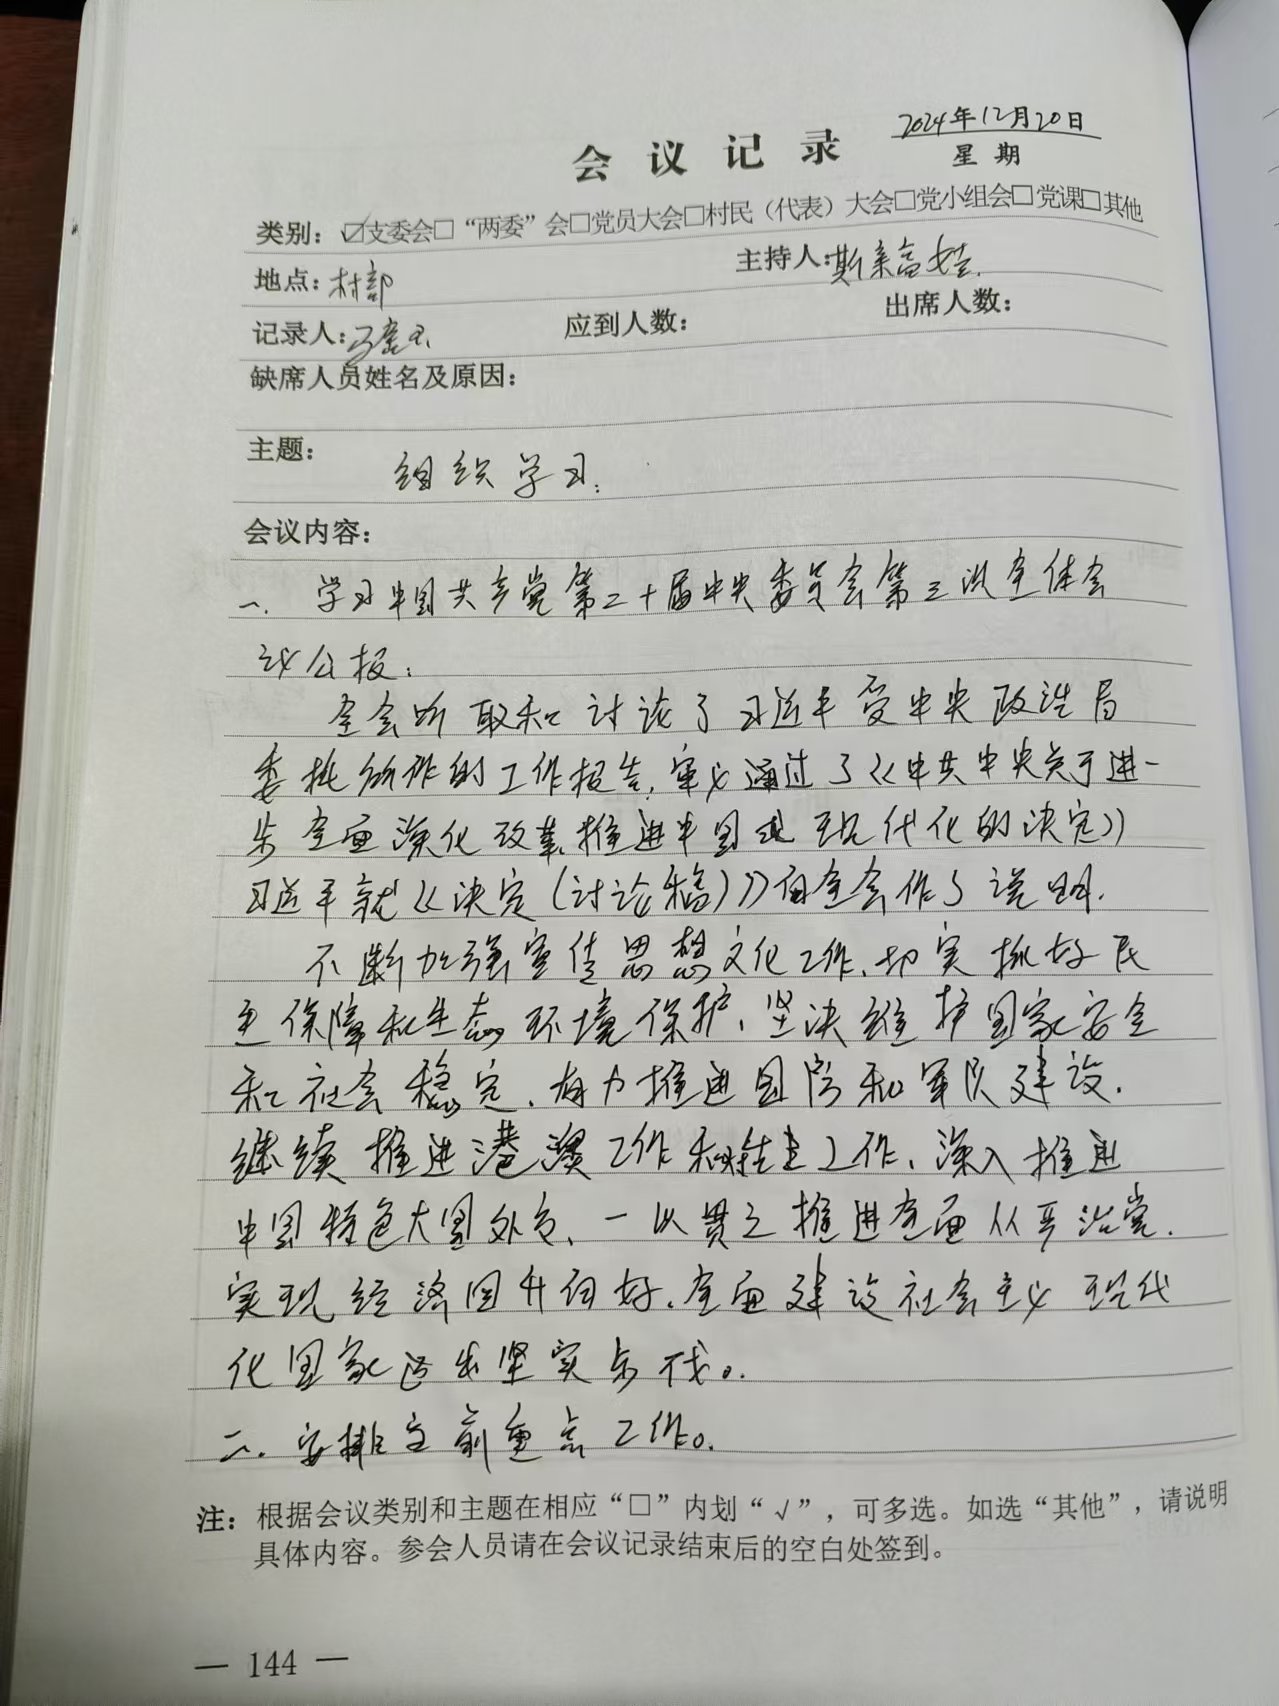 会议记录
2024年12月20日
星期
类别：☑支委会□“两委”会□党员大会□村民（代表）大会□党小组会□党课□其他
地点：村部 主持人：斯来高娃.
记录人： 应到人数： 出席人数：
缺席人员姓名及原因：
主题：
组织学习：
会议内容：
一、学习中国共产党第二十届中央委员会第三次全体会
议公报：
全会听取和讨论了习近平受中央政治局
委托所作的工作报告，审议通过了《中共中央关于进一
步全面深化改革、推进中国式现代化的决定》
习近平就《决定（讨论稿）》向全会作了说明.
不断加强宣传思想文化工作、切实抓好民
生保障和生态环境保护、坚决维护国家安全
和社会稳定、有力推进国防和军队建设.
继续推进港澳工作和对台工作、深入推进
中国特色大国外交、一以贯之推进全面从严治党.
实现经济回升向好、全面建设社会主义现代
化国家迈出坚实步伐。
二、安排当前重点工作。
注：根据会议类别和主题在相应“□”内划“√”，可多选。如选“其他”，请说明
具体内容。参会人员请在会议记录结束后的空白处签到。
— 144 —